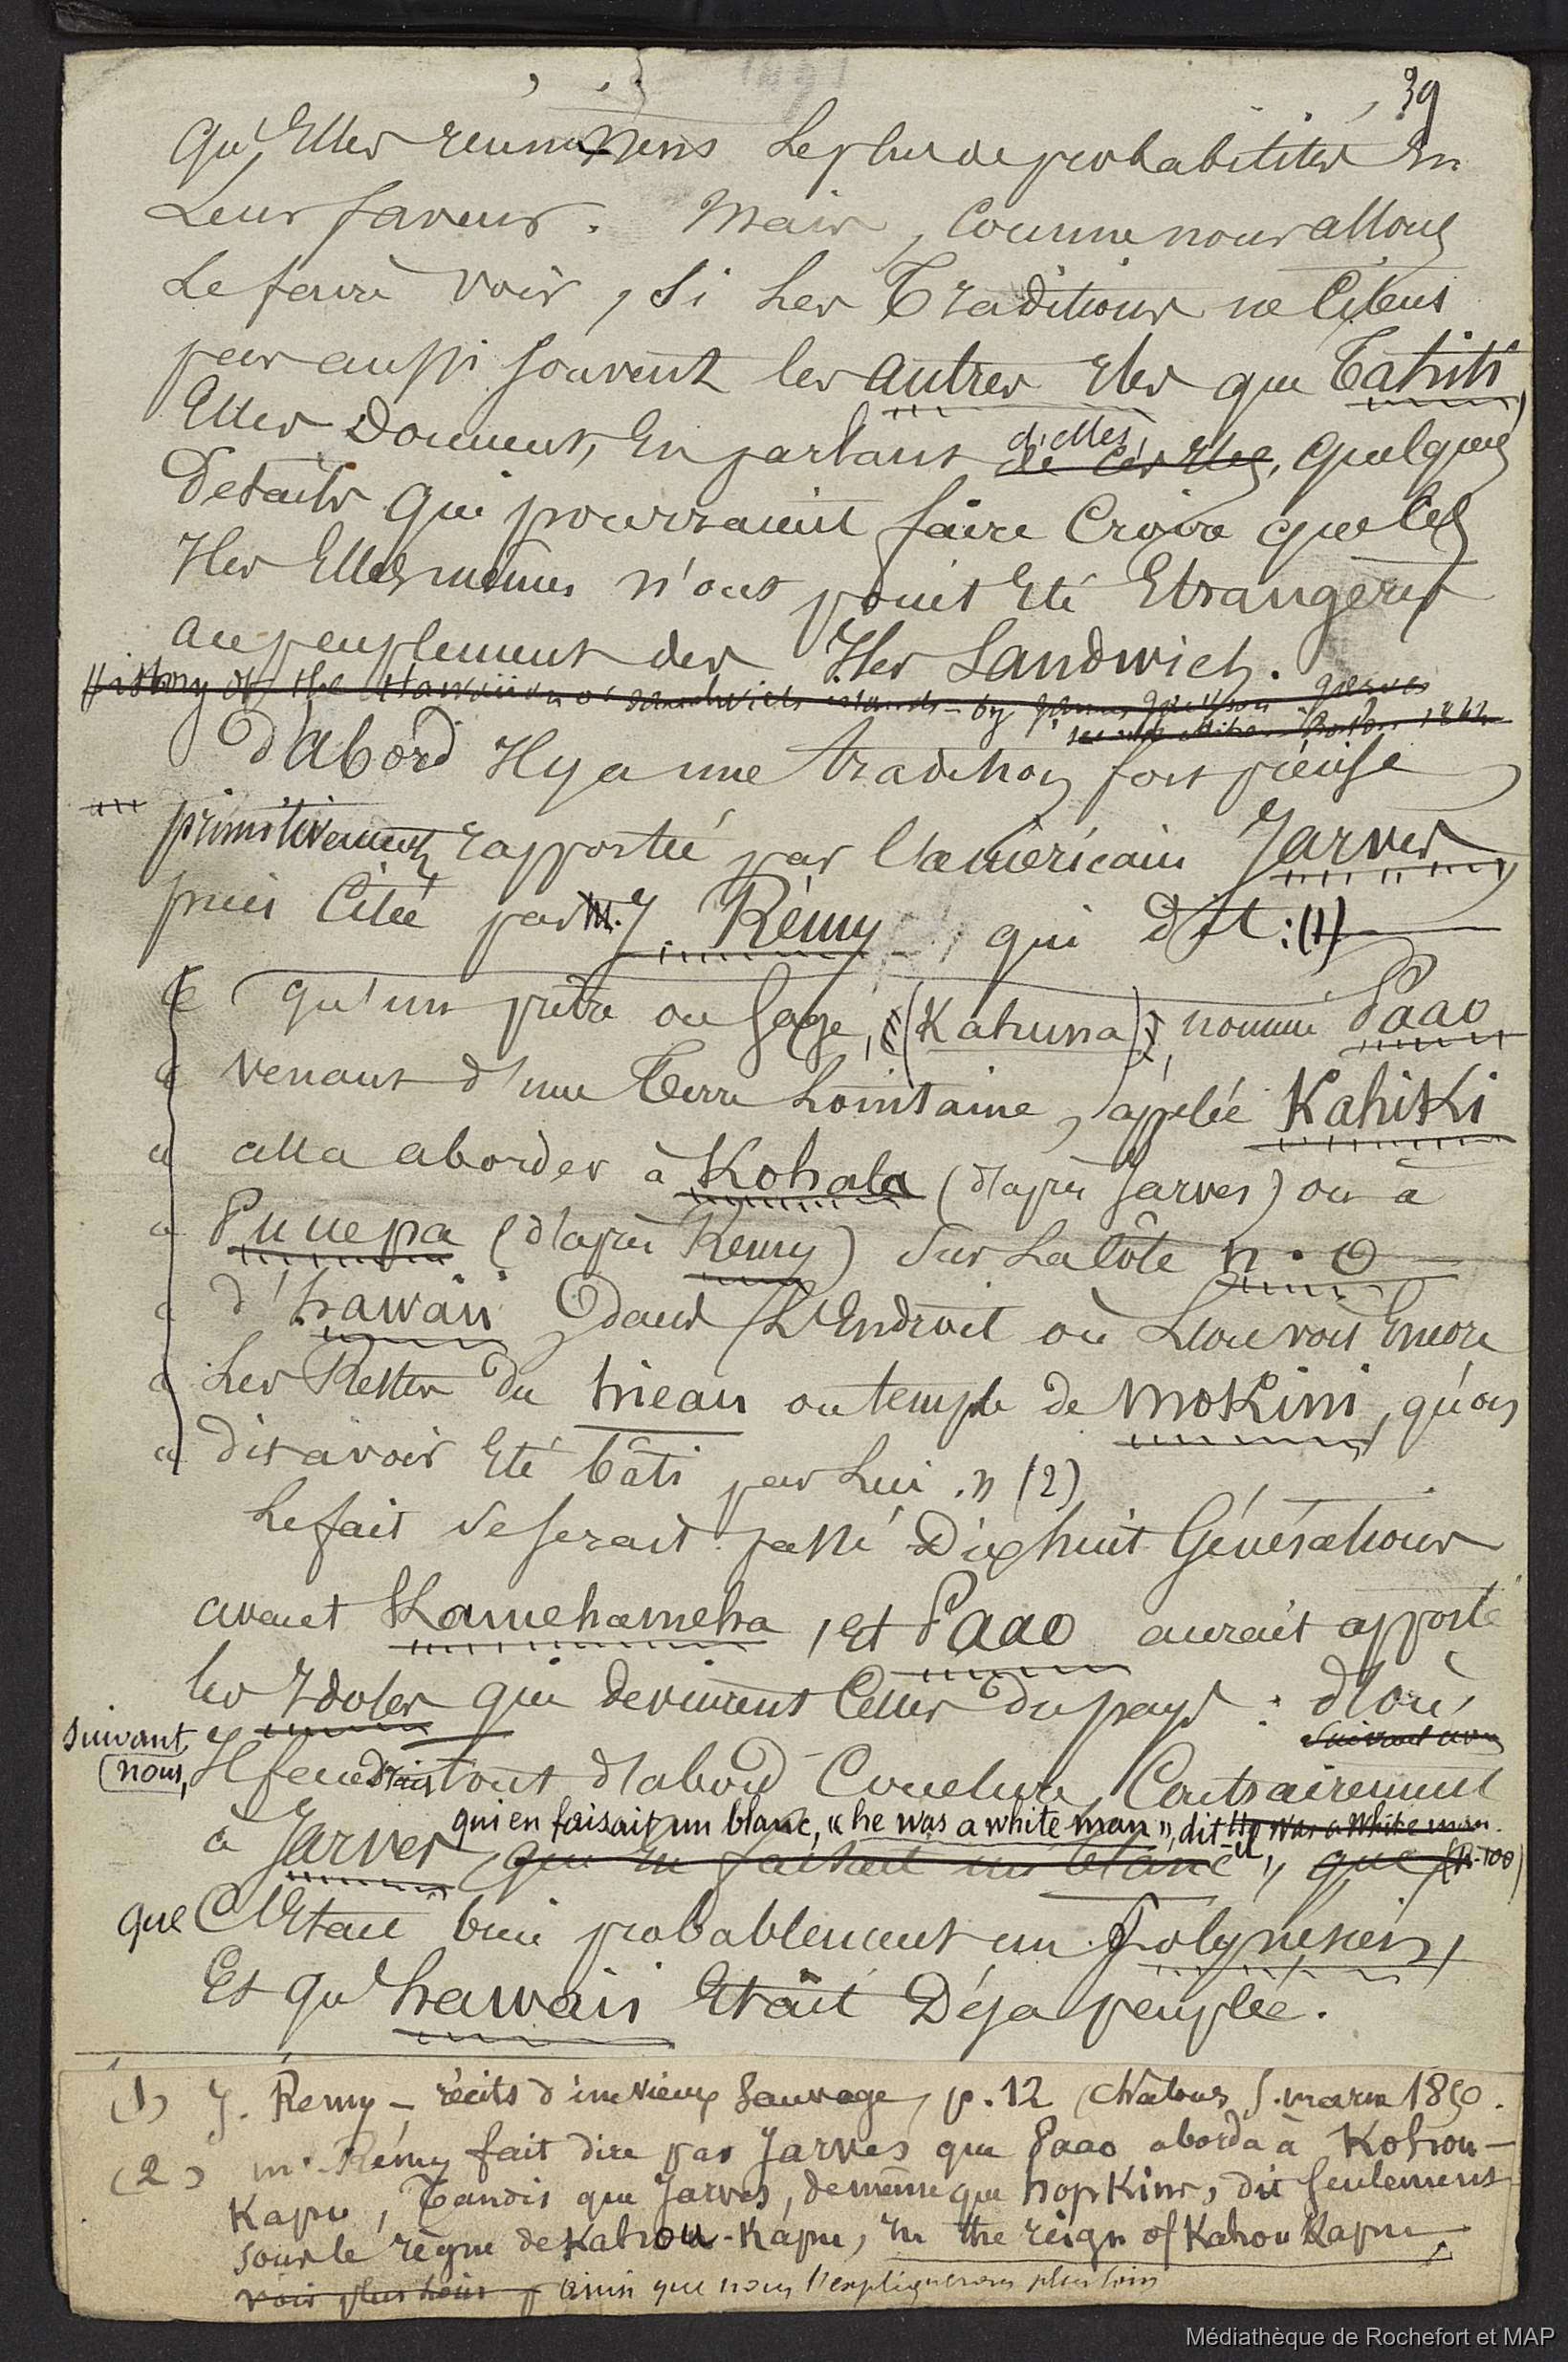 39
qu'Elles réunissens le plus de probabilités En
Leur faveur. Mais, Comme nous allons
Le faire voir, si les Traditions ne Citent
pas aussi souvent les autres Iles que Tahiti,
Elles Donnent, En parlant de ces Iles, d'elles, quelques
Détails qui pourraient faire Croire que ces
Iles Elles mêmes n'ont point Eté Etrangères
au peuplement des Iles Sandwich.
History of the Hawaiian or Sandwich islands - by James Jackson Jarves
seconde edition - Boston 1844
D'abord Il y a une tradition fort précise
primitivement rapportée par l'américain Jarves,
puis Citée par M. J. Rémy, qui dit : (1)
« qu'un prêtre ou Sage, (Kahuna), nommé Paao
« venant d'une Terre Lointaine, appelée Kahiki
« alla aborder à Kohala (d'après Jarves) ou à
« Puuepa (d'après Remy) sur la Côte n. O
« d'hawaii, dans L'Endroit où L'on voit Encore
« Les Restes du hieau ou temple de Mokini, qu'on
« dit avoir Eté bâti par Lui. » (2)
Le fait se serait passé Dix huit Générations
avant Kamehameha, et Paao aurait apporté
les Idoles qui devinrent Celles du pays : d'où,
suivant nous
suivant
nous, Il faudrait tout d'abord Conclure, Contrairement
qui en faisait un blanc, « he was a white man », dit-il, He was a white man.
à Jarves, qui en faisait un blanc, que (p. 100)
que C'Etait bien probablement un Polynésien,
Et qu'hawaii Etait Déja peuplée.
(1) J. Remy - récits d'un vieux Sauvage, p. 12 Châlons s. marne 1859.
(2) m. Rémy fait dire par Jarves que Paao aborda à Kohou-
Kapu, Tandis que Jarves, de même que hopkins, dit seulement
sous le règne de Kahou-Kapu, in the reign of Kahou Kapu,
voir plus loin ainsi que nous l'expliquerons plus loin
Médiathèque de Rochefort et MAP